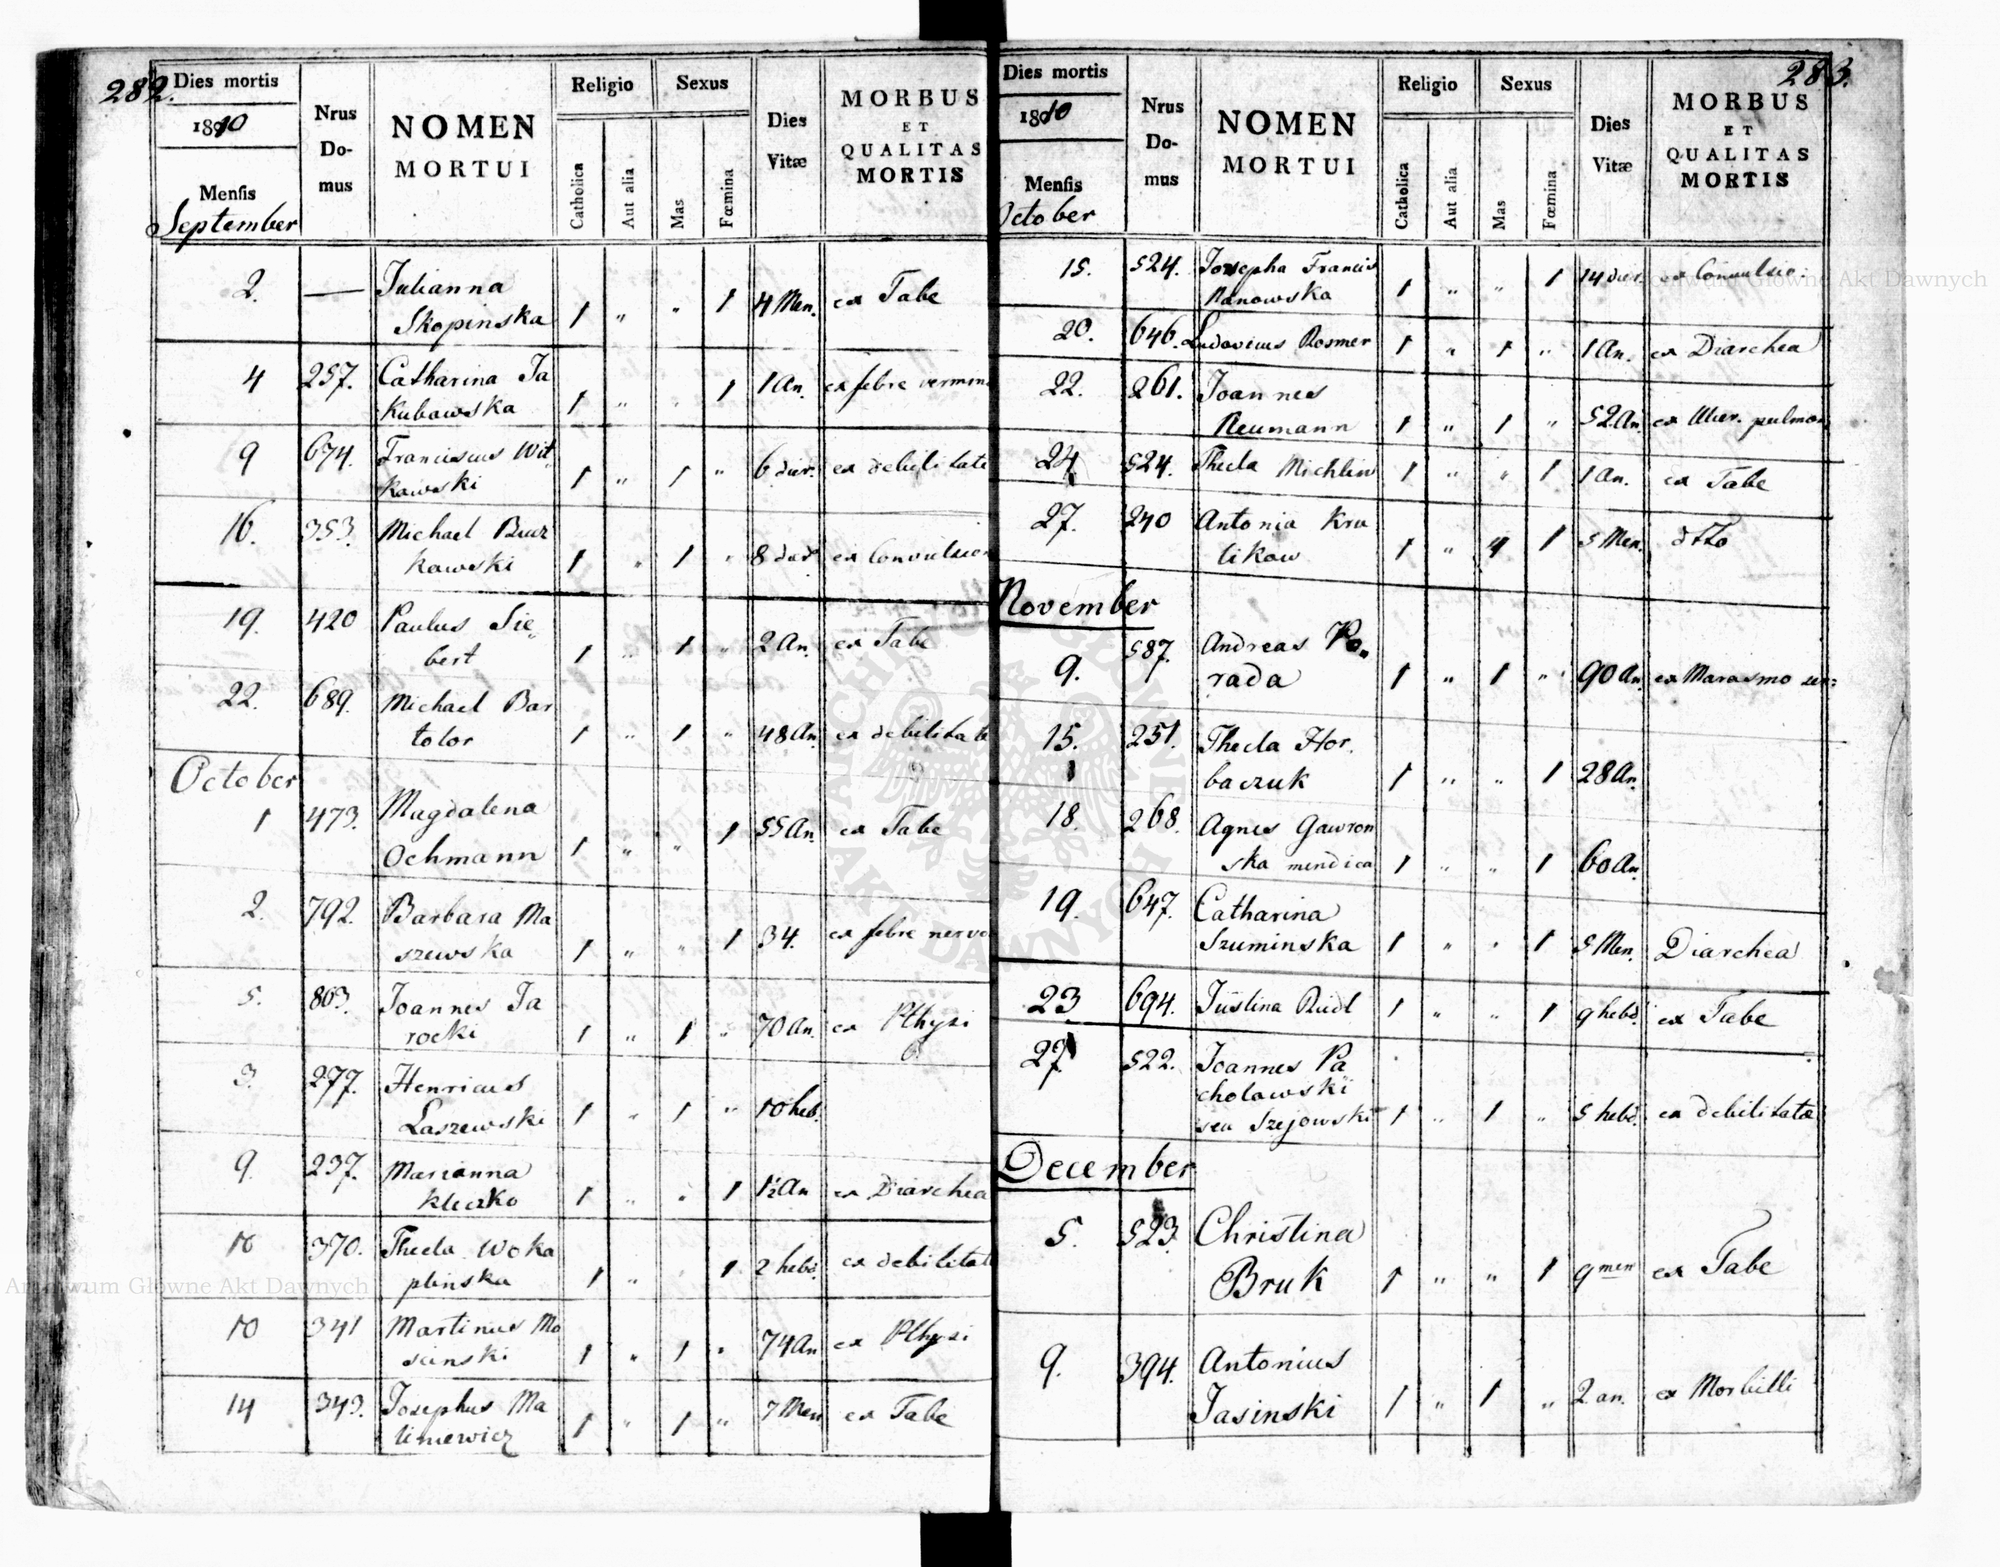 282.
Dies mortis
1810
Mensis
September
Nrus Do- mus
NOMEN MORTUI
Religio
Catholica
Aut alia
Sexus
Mas
Fœmina
Dies Vitæ
MORBUS ET QUALITAS MORTIS
2. — Julianna
Skopinska 1 " " 1 4 Men. ex Tabe
4 257. Catharina Ja
kubowska 1 " " 1 1 An. ex febre vermin
9 674. Franciscus Wit,
kowski 1 " 1 " 6 dier. ex debilitate
16. 353. Michael
kowski 1 " 1 " 8 dier ex Convulsio
19. 420 Paulus Sie„
bert 1 " 1 " 2 An. ex Tabe
22. 689. Michael Bar
tolor 1 " 1 " 48 An. ex debilitate
October
1 473. Magdalena
Ochmann 1 " " 1 55 An. ex Tabe
2. 792. Barbara Ma
szewska 1 " " 1 34. ex febre nervo
5. 803. Joannes Ja
rocki 1 " 1 " 70 An. ex Pthysi
3. 277. Henricus
Laszewski 1 " 1 " 10 heb.
9. 237. Marianna
Kleczko 1 " " 1 1½ An ex Diarchea
10 370. Thecla Woka
plinska 1 " 1 2 hebd. ex debilitate
10 341 Martinus Mo
scinski 1 " 1 " 74 An ex Pthysi
14 343. Josephus Ma
liniewicz 1 " 1 " 7 Men ex Tabe
283.
Dies mortis
1810
Mensis
October
Nrus Do- mus
NOMEN MORTUI
Religio
Catholica
Aut alia
Sexus
Mas
Fœmina
Dies Vitæ
MORBUS ET QUALITAS MORTIS
15. 524. Josepha Francis
1 " " 1 14 dier. ex Convulsio.
20. 646. Ludovicus Rosmer 1 " 1 " 1 An. ex Diarchea
22. 261. Joannes
Neumann 1 " 1 " 52 An. ex Ulcer. pulmon
24 524. Thecla Michlin 1 " " 1 1 An. ex Tabe
27. 240 Antonia Kru
likow 1 " 1 5 Men. dtto
November
9. 587. Andreas Po„
rada 1 " 1 " 90 An. ex Marasmo sen:
15. 251. Thecla Hor.
baczuk 1 " " 1 28 An.
18. 268. Agnes Gawron
ska mendica 1 " " 1 60 An.
19. 647. Catharina
Szuminska 1 " " 1 5 Men. Diarchea
23 694. Justina Riedl 1 " " 1 9 hebd. ex Tabe
27 522. Joannes Pa
cholawski
seu Szejowski 1 " 1 " 5 hebd. ex debilitate
December
5. 523. Christina
Bruk 1 " " 1 9 men ex Tabe
9. 394. Antonius
Jasinski 1 " 1 " 2 an. ex Morbilli
Archiwum Główne Akt Dawnych
Archiwum Główne Akt Dawnych
ARCHIWUM GŁÓWNE AKT DAWNYCH